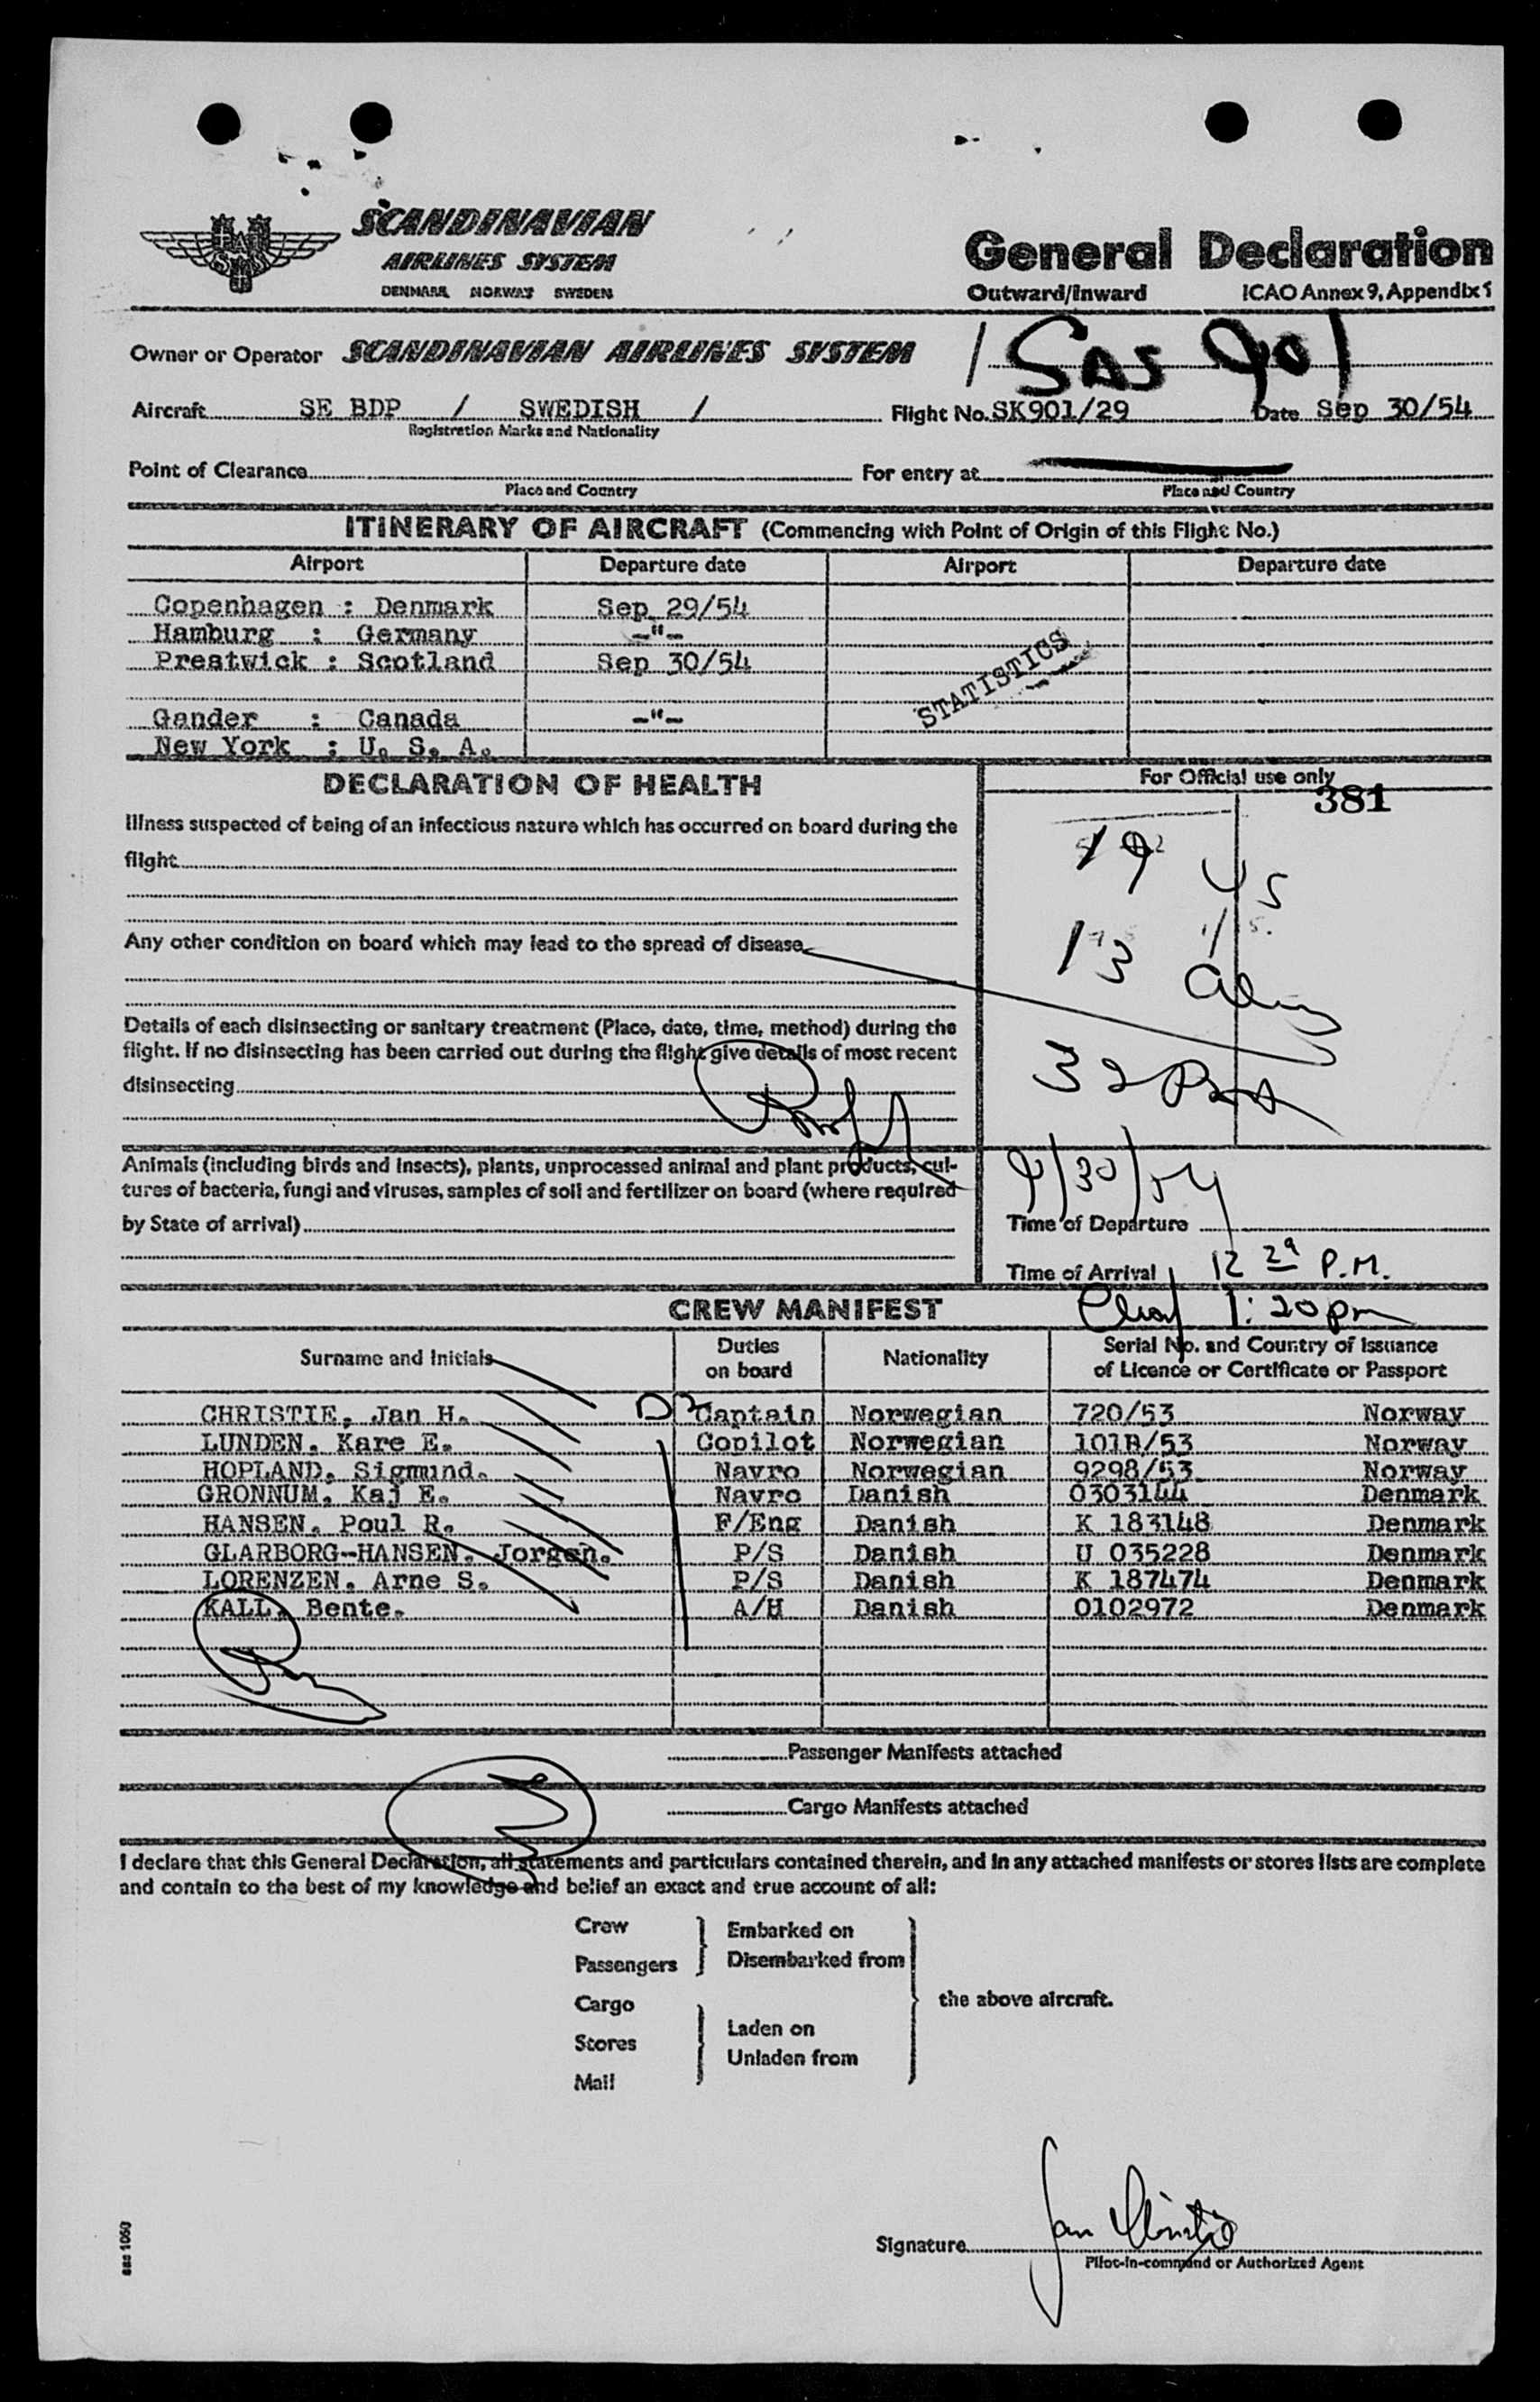 SCANDINAVIAN
AIRLINES SYSTEM
DENMARK NORWAY SWEDEN
General Declaration
Outward/Inward ICAO Annex 9, Appendix 1
Owner or Operator SCANDINAVIAN AIRLINES SYSTEM
SAS 901
Aircraft SE BDP / SWEDISH / Flight No. SK901/29 Date Sep 30/54
Registration Marks and Nationality
Point of Clearance For entry at
Place and Country Place and Country
ITINERARY OF AIRCRAFT (Commencing with Point of Origin of this Flight No.)
Airport Departure date Airport Departure date
Copenhagen : Denmark Sep 29/54
Hamburg : Germany -"-
Prestwick : Scotland Sep 30/54
STATISTICS
Gander : Canada -"-
New York : U. S. A.
DECLARATION OF HEALTH
For Official use only
381
Illness suspected of being of an infectious nature which has occurred on board during the
flight
19 US
Any other condition on board which may lead to the spread of disease
13 Alien
Details of each disinsecting or sanitary treatment (Place, date, time, method) during the
flight. If no disinsecting has been carried out during the flight give details of most recent
disinsecting
32
Animals (including birds and insects), plants, unprocessed animal and plant products, cul-
tures of bacteria, fungi and viruses, samples of soil and fertilizer on board (where required
by State of arrival)
9/30/54
Time of Departure
Time of Arrival 12 29 P.M.
CREW MANIFEST
1:20 pm
Surname and Initials Duties on board Nationality Serial No. and Country of Issuance of Licence or Certificate or Passport
CHRISTIE, Jan H. Captain Norwegian 720/53 Norway
LUNDEN, Kare E. Copilot Norwegian 101B/53 Norway
HOPLAND, Sigmund. Navro Norwegian 9298/53 Norway
GRONNUM, Kaj E. Navro Danish 0303144 Denmark
HANSEN, Poul R. F/Eng Danish K 183148 Denmark
GLARBORG-HANSEN, Jorgen. P/S Danish U 035228 Denmark
LORENZEN, Arne S. P/S Danish K 187474 Denmark
KALL, Bente. A/H Danish 0102972 Denmark
Passenger Manifests attached
Cargo Manifests attached
I declare that this General Declaration, all statements and particulars contained therein, and in any attached manifests or stores lists are complete
and contain to the best of my knowledge and belief an exact and true account of all:
Crew
Passengers
Embarked on
Disembarked from
Cargo
Stores
Mail
Laden on
Unladen from
the above aircraft.
Signature Jan Christie
Pilot-in-command or Authorized Agent
sas 1050